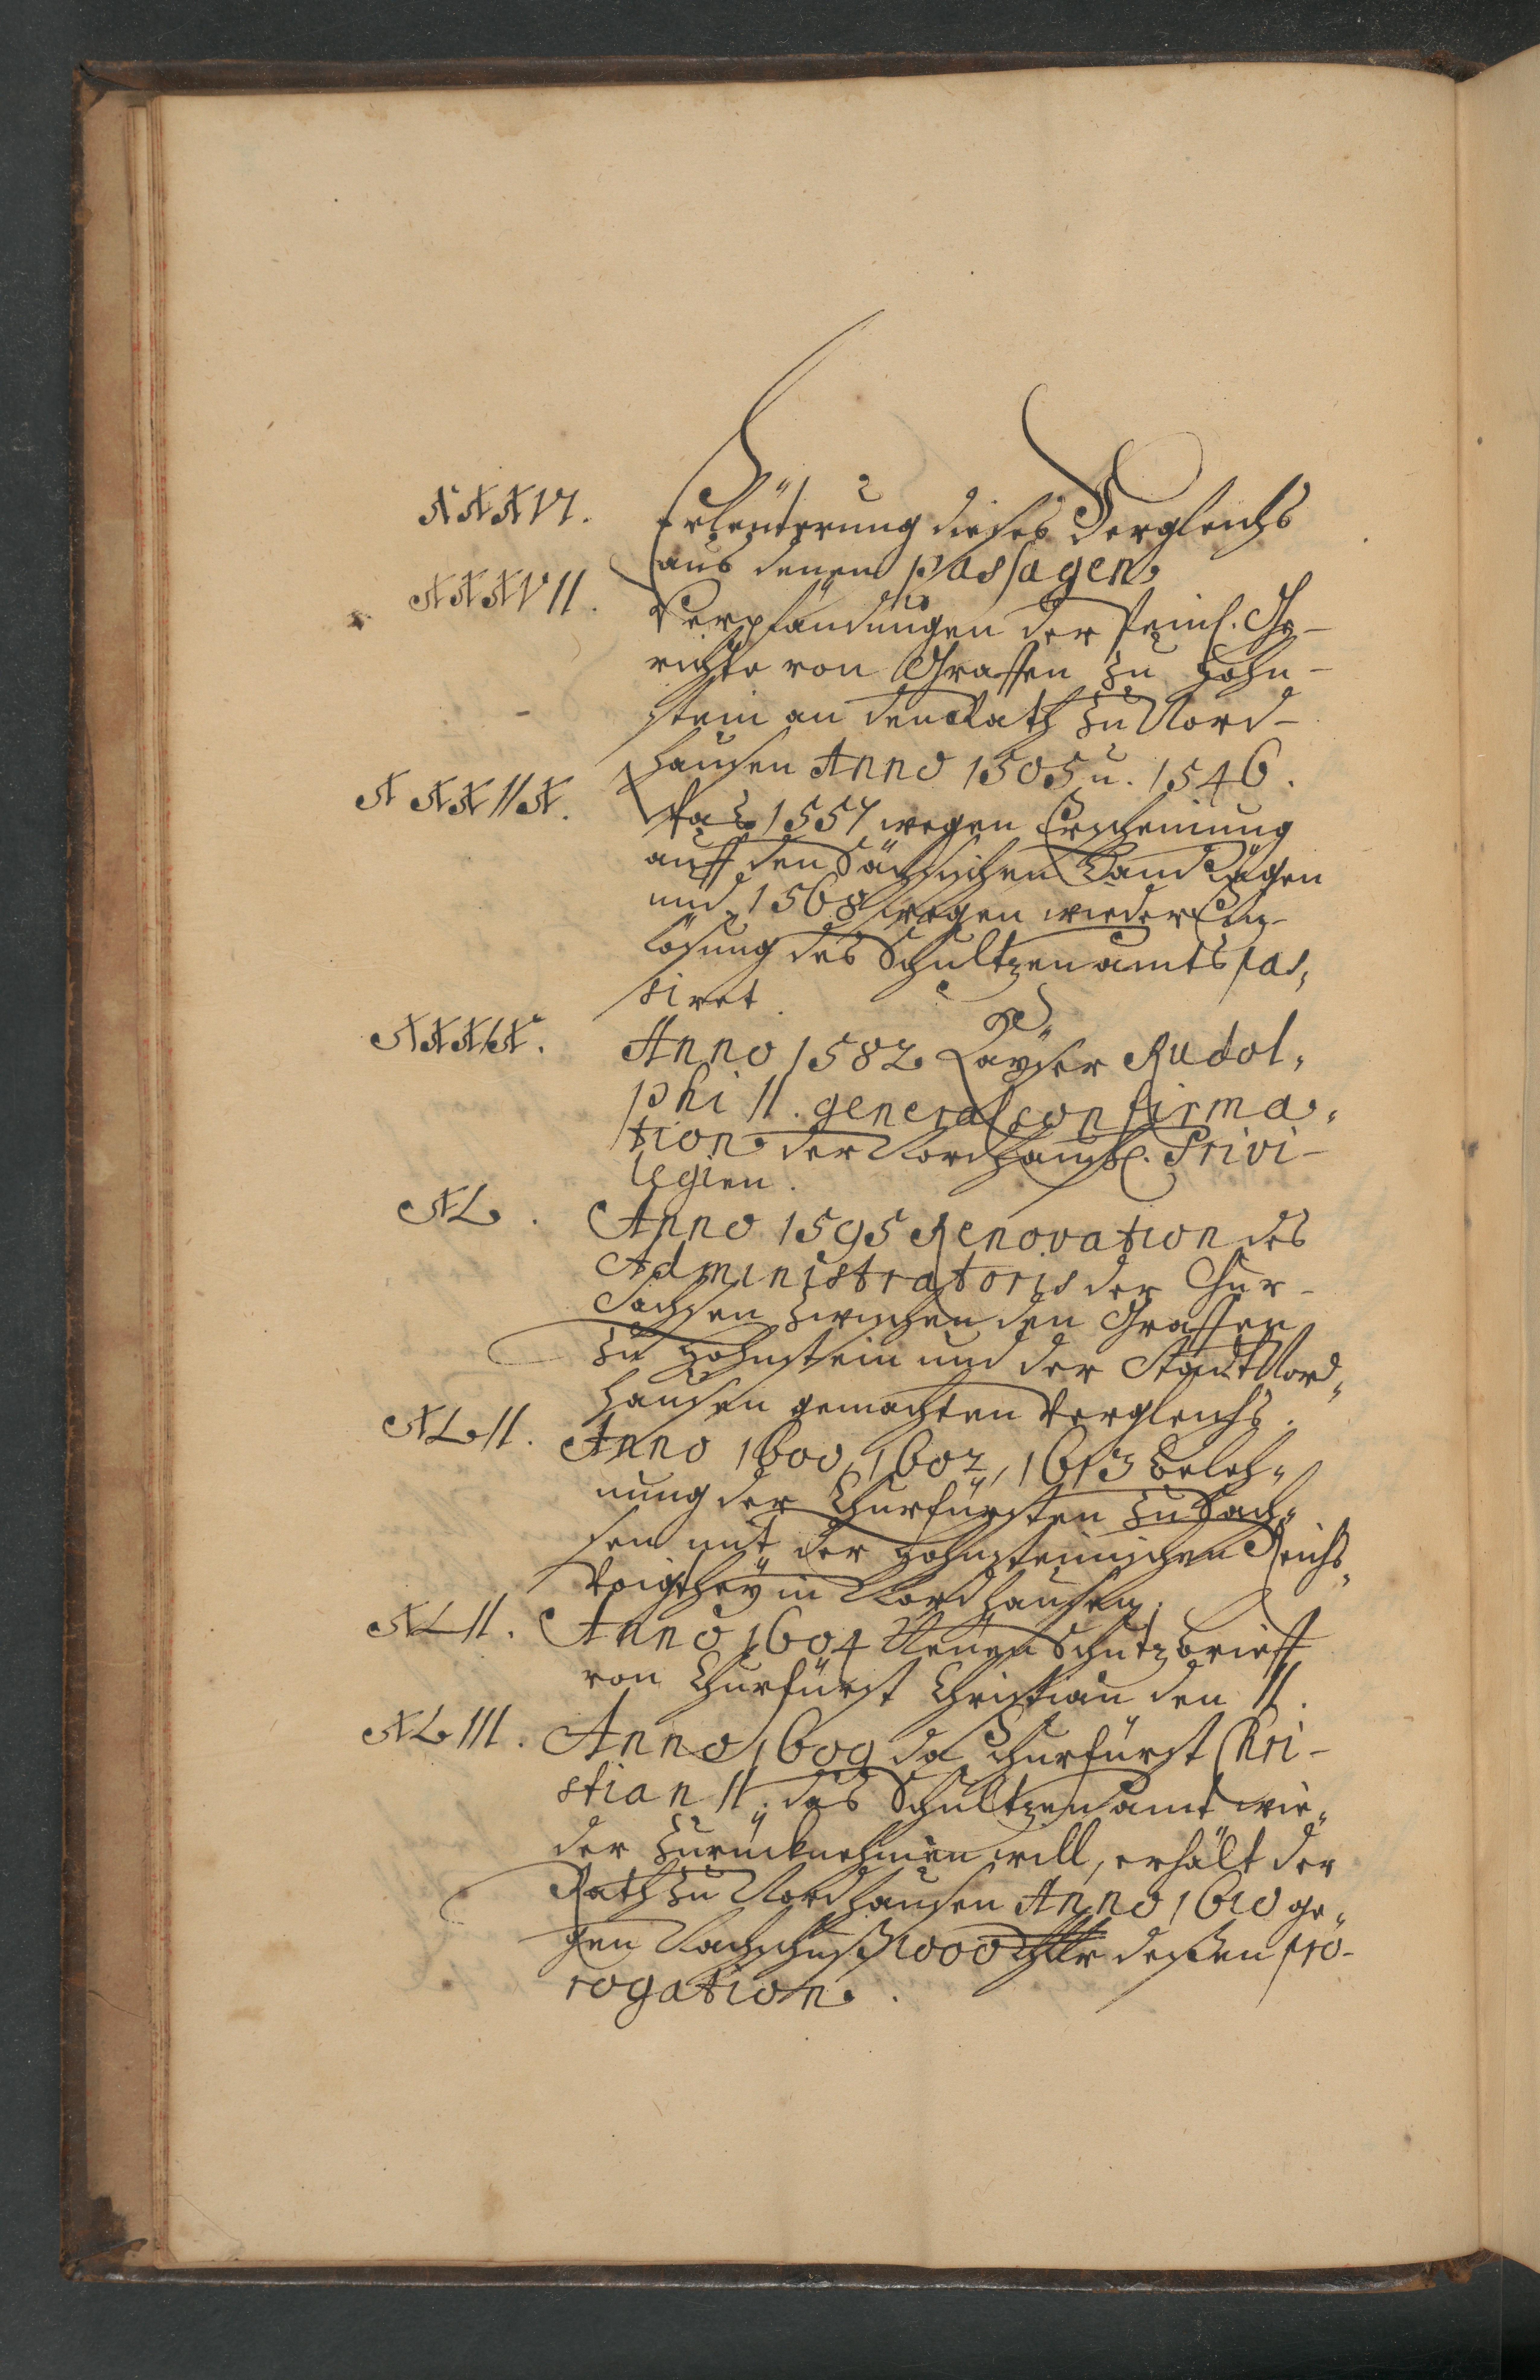 XXXVI. Erleüterung dieses Vergleichs
aus denen Passagen
XXXVII. Verpfändungen der Peinl. Ge-
richte von Graffen zu Hohn-
stein an den Rath zu Nord-
hausen Anno 1505 u. 1546.
XXXIIX. Was 1557 wegen Erscheinung
auff den Sächsischen Land Tägen
und 1568 wegen wieder Ein-
lösung des Schultzen amts pas,
siret.
XXXIX. Anno 1582 Kayser Rudol,
phi II. general confirma,
tion der Nordhausl. Privi-
legien.
XL. Anno 1595 Renovation des
Administratoris der Chur-
Sachsen zwischen den Graffen
zu Hohnstein und der Stadt Nord„
hausen gemachten Vergleichs.
XLII. Anno 1600, 1602, 1613 Beleh„
nung der Churfürsten zu Sach„
sen mit der Hohnsteinischen Reichs„
Voigthey in Nordhausen.
XLII. Anno 1604 Neüen Schutzbrieff
von Churfürst Christian den II.
XLIII. Anno 1609 da Churfürst Chri-
stian II. das Schultzen amt wie„
der zurücknehmen will, erhält der
Rath zu Nordhausen Anno 1610 ge„
gen Nachschuß 1000 thlr deßen pro-
rogation.